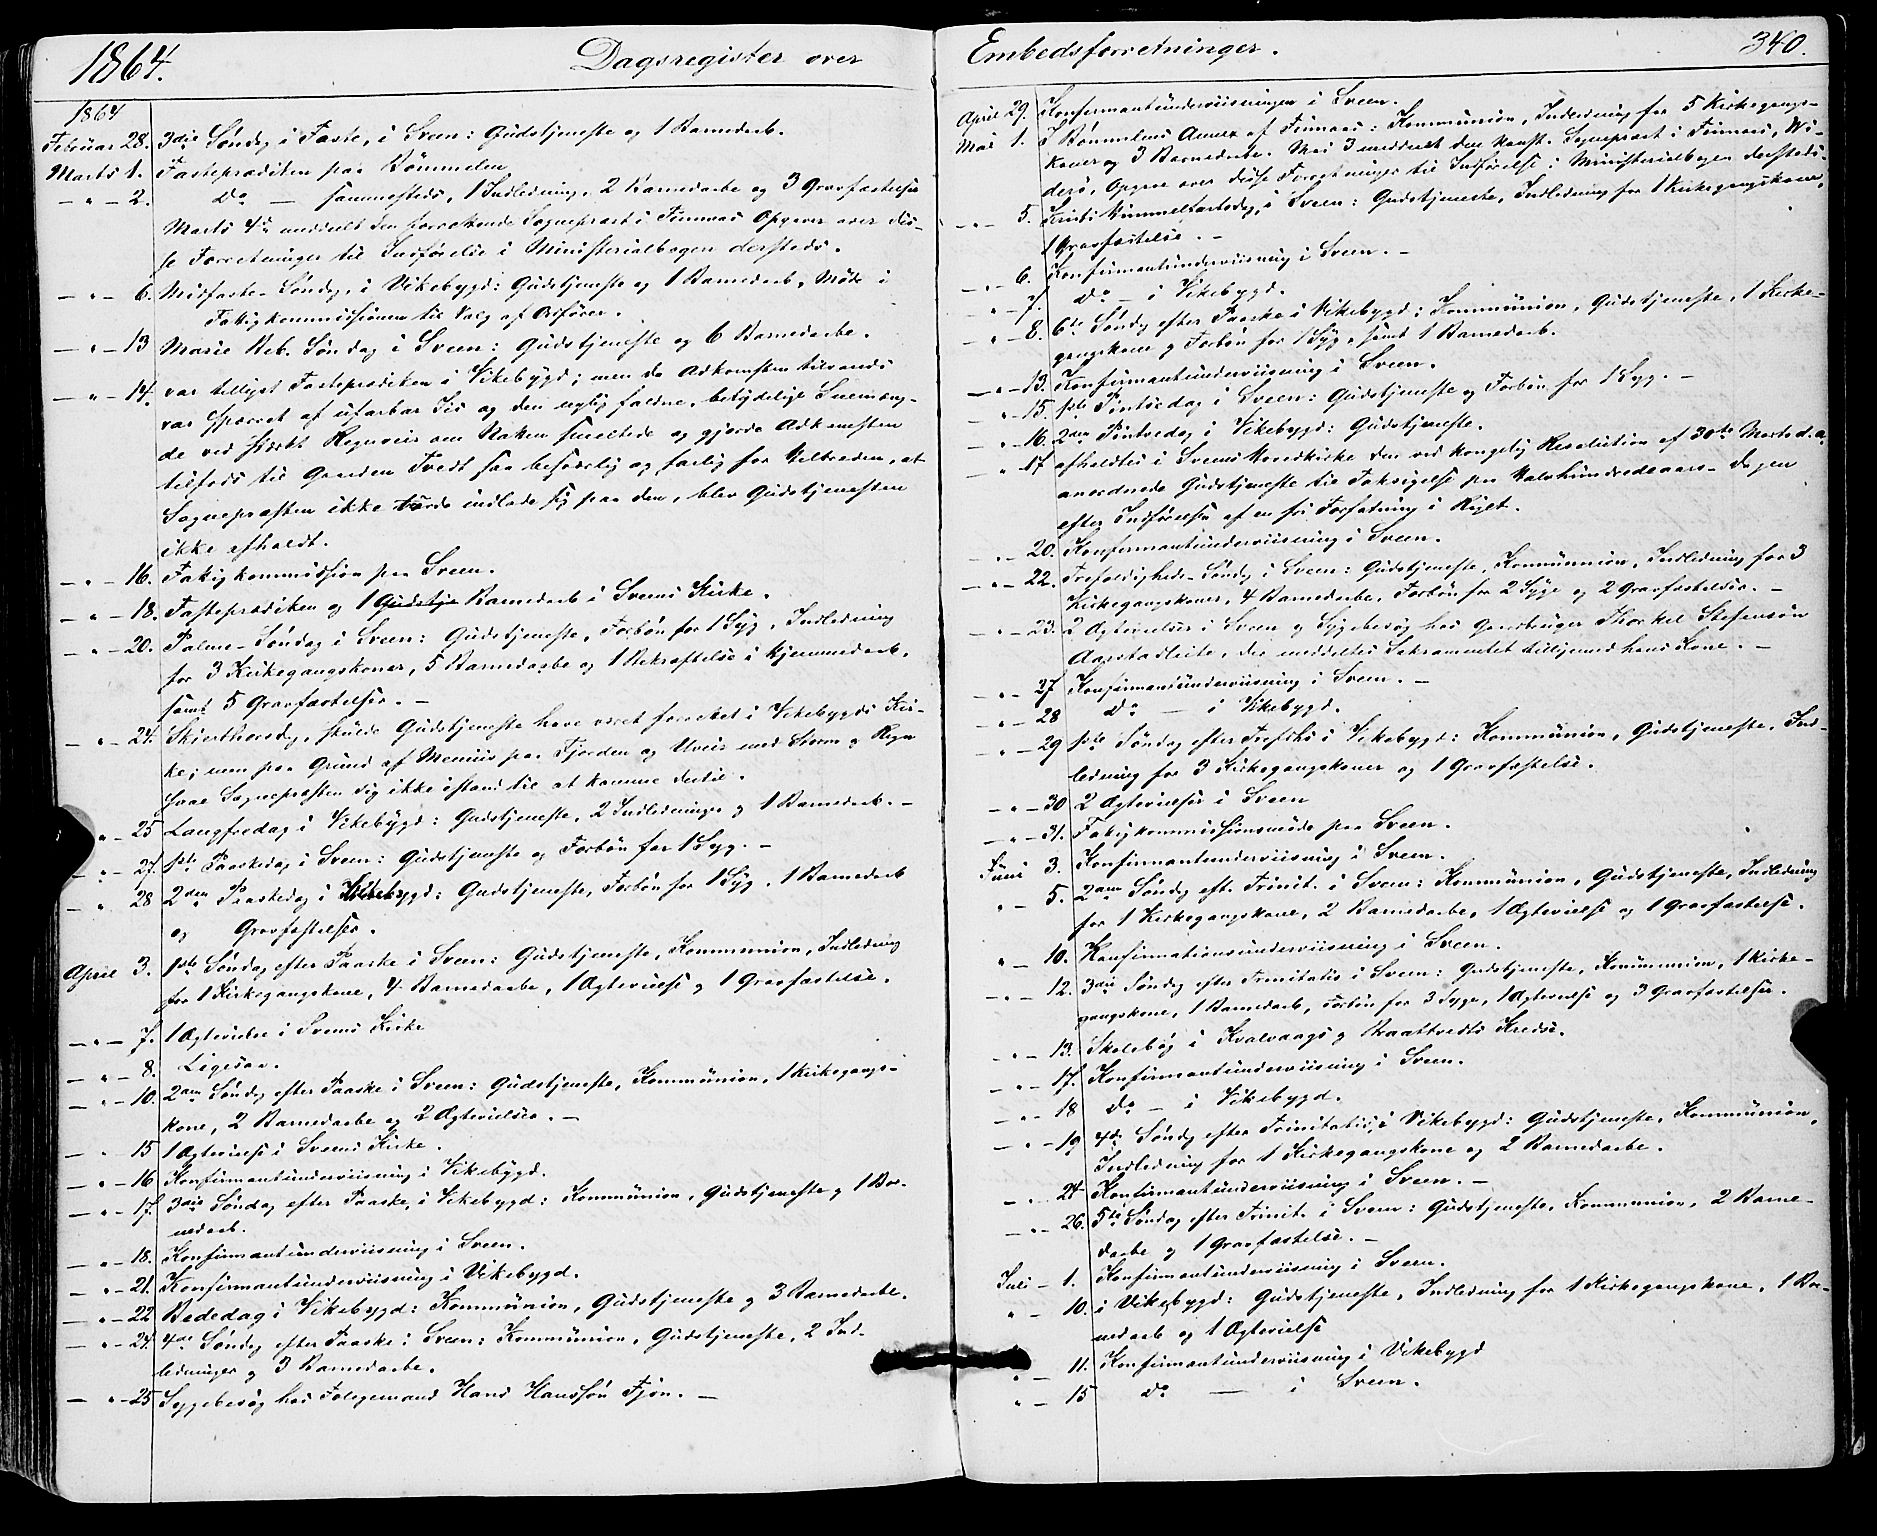 1864. Dagsregister over
1864
Februar 28. 3die Søndag i Faste, i Sveen: Gudstjeneste og 1 Barnedaab.
Marts 1. Fasteprædiken paa Bømmelen
— " — 2. Do — sammesteds, 1 Indledning, 2 Barnedaabe og 3 Gravfæstelser
Marts 4de meddelt den Sognepræst i Finnaas Opgaver over dis-
se Forretninger til Indførelse i Ministerialbogen dersteds.
— " — 6. Midfaste-Søndag, i Vikebygd: Gudstjeneste og 1 Barnedaab, Møde i
Fatigkommissionen til Valg af Ordfører.
— " — 13 Mariæ Beb. Søndag i Sveen: Gudstjeneste og 6 Barnedaabe.
— " — 14. var tillyst Fasteprædiken i Vikebygd; men da Adkomsten tilvands
var spærret af ufarbar Iis og den nylig faldne, betydelige Snemæng-
de ved stærkt Regnveir om Natten smeltede og gjorde Adkomsten
tilfods til Gaarden Tvedt saa besværlig og farlig for Helbreden, at
Sognepræsten ikke turde indlade sig paa den, blev Gudstjenesten
ikke afholdt.
— " — 16. Fatigkommission paa Sveen.
— " — 18. Fasteprædiken og 1 Gudstje Barnedaab i Sveens Kirke.
— " — 20. Palme-Søndag i Sveen: Gudstjeneste, Forbøn for 1 Syg, Indledning
for 3 Kirkegangskoner, 5 Barnedaabe og 1 Bekræftelse i Hjemmedaab,
samt 5 Gravfæstelser. —
— " — 24. Skjærthorsdag, skulde Gudstjeneste have været forrettet i Vikebygds Kir-
ke; men paa Grund af Meeniis paa Fjorden og Uveir med Storm og Regn
saae Sognepræsten sig ikke istand til at komme dertil.
" — 25 Langfredag i Vikebygd: Gudstjeneste, 2 Indledninger og 1 Barnedaab. —
— " — 27. 1ste Paaskedag i Sveen: Gudstjeneste og Forbøn for 1 Syg. —
— " 28 2den Paaskedag i Vikebygd: Gudstjeneste, Forbøn for 1 Syg, 1 Barnedaab
og Gravfæstelser.
April 3. 1ste Søndag efter Paaske i Sveen: Gudstjeneste, Kommunion, Indledning
for 1 Kirkegangskone, 4 Barnedaabe, 1 Ægtevielse og 1 Gravfæstelse.
— " — 7. 1 Ægtevielse i Sveens Kirke
— " — 8. Ligesaa.
— " — 10. 2den Søndag efter Paaske i Sveen: Gudstjeneste, Kommunion, 1 Kirkegangs-
kone, 2 Barnedaabe og 2 Ægtevielser. —
— " 15 1 Ægtevielse i Sveens Kirke.
— " — 16 Konfirmantunderviisning i Vikebygd.
— " — 17. 3die Søndag efter Paaske, i Vikebygd: Kommunion, Gudstjeneste og 1 Bar-
nedaab.
— " — 18. Konfirmantunderviisning i Sveen.
— " — 21. Konfirmantunderviisning i Vikebygd.
— " — 22 Bededag i Vikebygd: Kommunion, Gudstjeneste og 3 Barnedaabe.
— " — 24. 4de Søndag efter Paaske i Sveen: Kommunion, Gudstjeneste, 2 Ind-
ledninger og 3 Barnedaabe.
— " — 25 Sygebesøg hos Folgemand Hans Hanssøn Fjøn. —
Embedsforretninger. 340.
April 29. Konfirmantunderviisningen i Sveen.
Mai 1. I Bømmelens Annex af Finnaas: Kommunion, Indledning for 5 Kirkegangs-
koner og 3 Barnedaabe. Mai 3 meddeelt den konst. Sognepræst i Finnaas,
Opgave over disse Forretninger til Indførelse i Ministerialbogen dersteds.
— " — 5. Kristi Himmelfartsdag, i Sveen: Gudstjeneste, Indledning for 1 Kirkegangskone,
1 Gravfæstelse. —
— " — 6. Konfirmantunderviisning i Sveen. —
— " — 7. Do — i Vikebygd.
— " — 8. 6te Søndag efter Paaske i Vikebygd: Kommunion, Gudstjeneste, 1 Kirke-
gangskone og Forbøn for 1 Syg, samt 1 Barnedaab.
— " — 13. Konfirmantunderviisning i Sveen.
— " 15. 1ste Pintsedag i Sveen: Gudstjeneste og Forbøn for 1 Syg. —
— " — 16. 2den Pintsedag i Vikebygd: Gudstjeneste.
— " 17 afholdtes i Sveens Hovedkirke den ved kongelig Resolution af 30te Marts d. a.
anordnede Gudstjeneste til Taksigelse paa Halvhundredeaars-Dagen
efter Indførelsen af en fri Forfatning i Riget.
— " — 20. Konfirmantunderviisning i Sveen.
— " — 22. Trefoldigheds-Søndag i Sveen: Gudstjeneste, Kommunion, Indledning for 3
Kirkegangskoner, 4 Barnedaabe, Forbøn for 2 Syge og 2 Gravfæstelser. —
— " — 23. 2 Ægtevielser i Sveen og Sygebesøg hos Gaardbruger Thorkel Stefensøn
, der meddeltes Sakramentet tilligemed hans Kone. —
— " — 27 Konfirmantunderviisning i Sveen. —
— " — 28 Do — i Vikebygd.
— " — 29 1ste Søndag efter Trefhd i Vikebygd: Kommunion, Gudstjeneste, Ind-
ledning for 3 Kirkegangskoner og 1 Gravfæstelse.
— " — 30 2 Ægtevielser i Sveen
— " — 31. Fatigkommissionsmøde paa Sveen.
Juni 3. Konfirmantunderviisning i Sveen.
" — 5. 2den Søndag eft. Trinit. i Sveen: Kommunion, Gudstjeneste, Indledning
for 1 Kirkegangskone, 2 Barnedaabe, 1 Ægtevielse og 1 Gravfæstelse.
" — 10. Konfirmationsunderviisning i Sveen.
— " — 12. 3die Søndag efter Trinitatis i Sveen: Gudstjeneste, Kommunion, 1 Kirke-
gangskone, 1 Barnedaab, Forbøn for 3 Syge, 1 Ægtevielse og 3 Gravfæstelser.
— " — 13. Skolebesøg i Kvalvaags og Kredse.
— " — 17. Konfirmantunderviisning i Sveen.
— " — 18 Do — i Vikebygd.
— " — 19 4de Søndag efter Trinitatis, i Vikebygd: Gudstjeneste, Kommunion,
Indledning for 1 Kirkegangskone og 2 Barnedaabe.
— " 24 Konfirmantunderviisning i Sveen. —
— " — 26. 5te Søndag efter Trinit. i Sveen: Gudstjeneste, Kommunion, 2 Barne-
daabe og 1 Gravfæstelse. —
Juli — 1. Konfirmantunderviisning i Sveen.
" — 10. i Vikebygd: Gudstjeneste, Indledning for 1 Kirkegangskone, 1 Bar-
nedaab og 1 Ægtevielse
" — 11. Konfirmantunderviisning i Vikebygd
" — 15 Do — i Sveen.